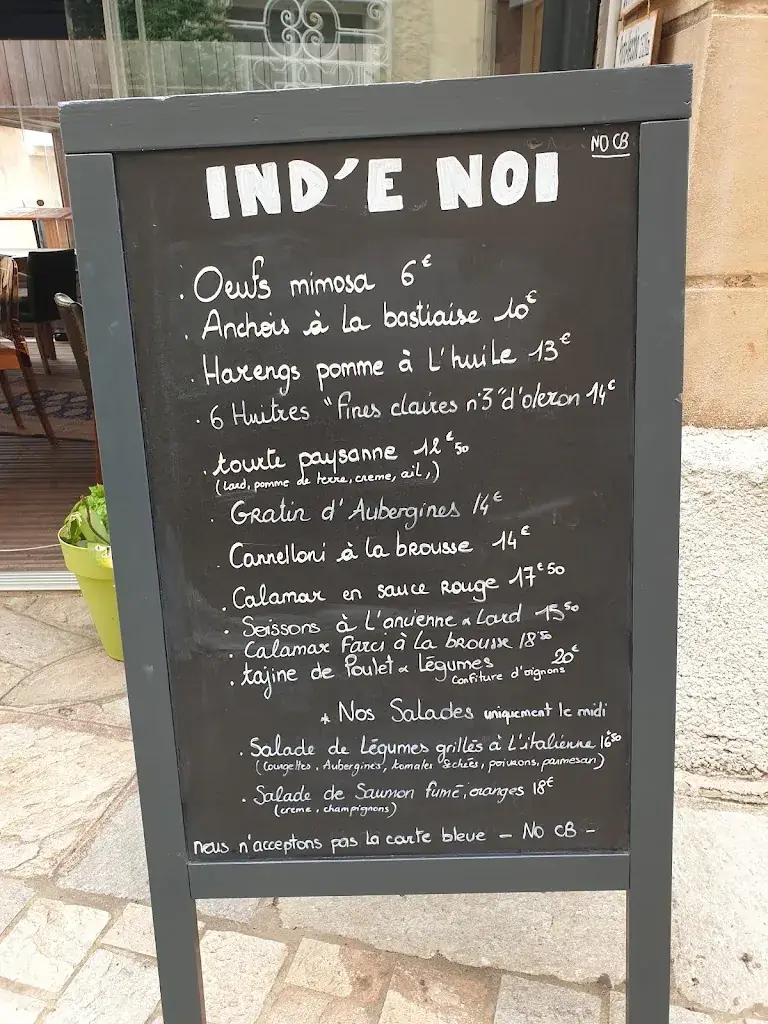 NO CB
IND'E NOI
. Oeufs mimosa 6€
. Anchois à la bastiaise 10€
. Harengs pomme à l'huile 13€
. 6 Huitres "fines claires n°3" d'oleron 14€
. tourte paysanne 12€50
(lard, pomme de terre, creme, ail,)
. Gratin d'Aubergines 14€
. Cannelloni à la brousse 14€
. Calamar en sauce rouge 17€50
. Soissons à l'ancienne & lard 15€50
. Calamar farci à la brousse 18€50
. tajine de Poulet & légumes 20€
confiture d'oignons
* Nos Salades uniquement le midi
. Salade de légumes grillés à l'italienne 16€50
(Courgettes, Aubergines, tomates séchées, poivrons, parmesan)
. Salade de Saumon fumé, oranges 18€
(creme, champignons)
nous n'acceptons pas la carte bleue - NO CB -